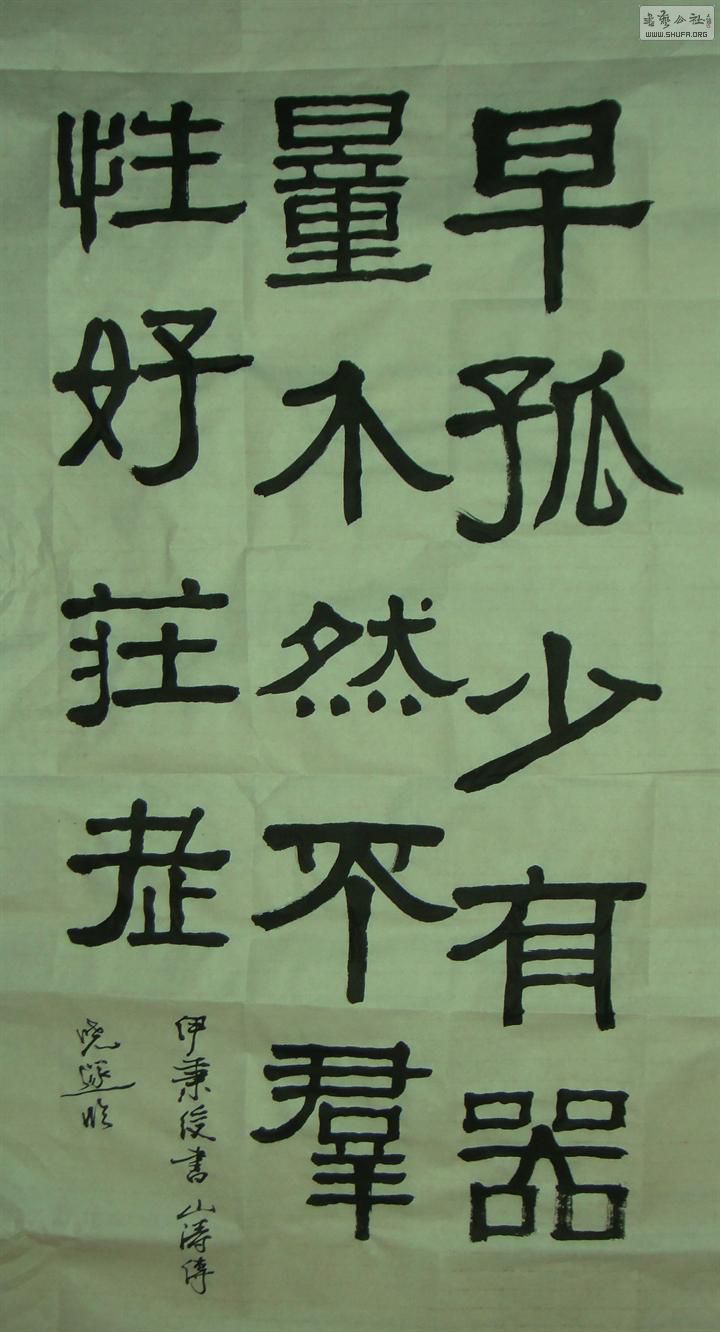 早孤少有器
量介然不羣
性好莊老
伊秉绶書山濤傳
晓遂临
書藝公社
WWW.SHUFA.ORG